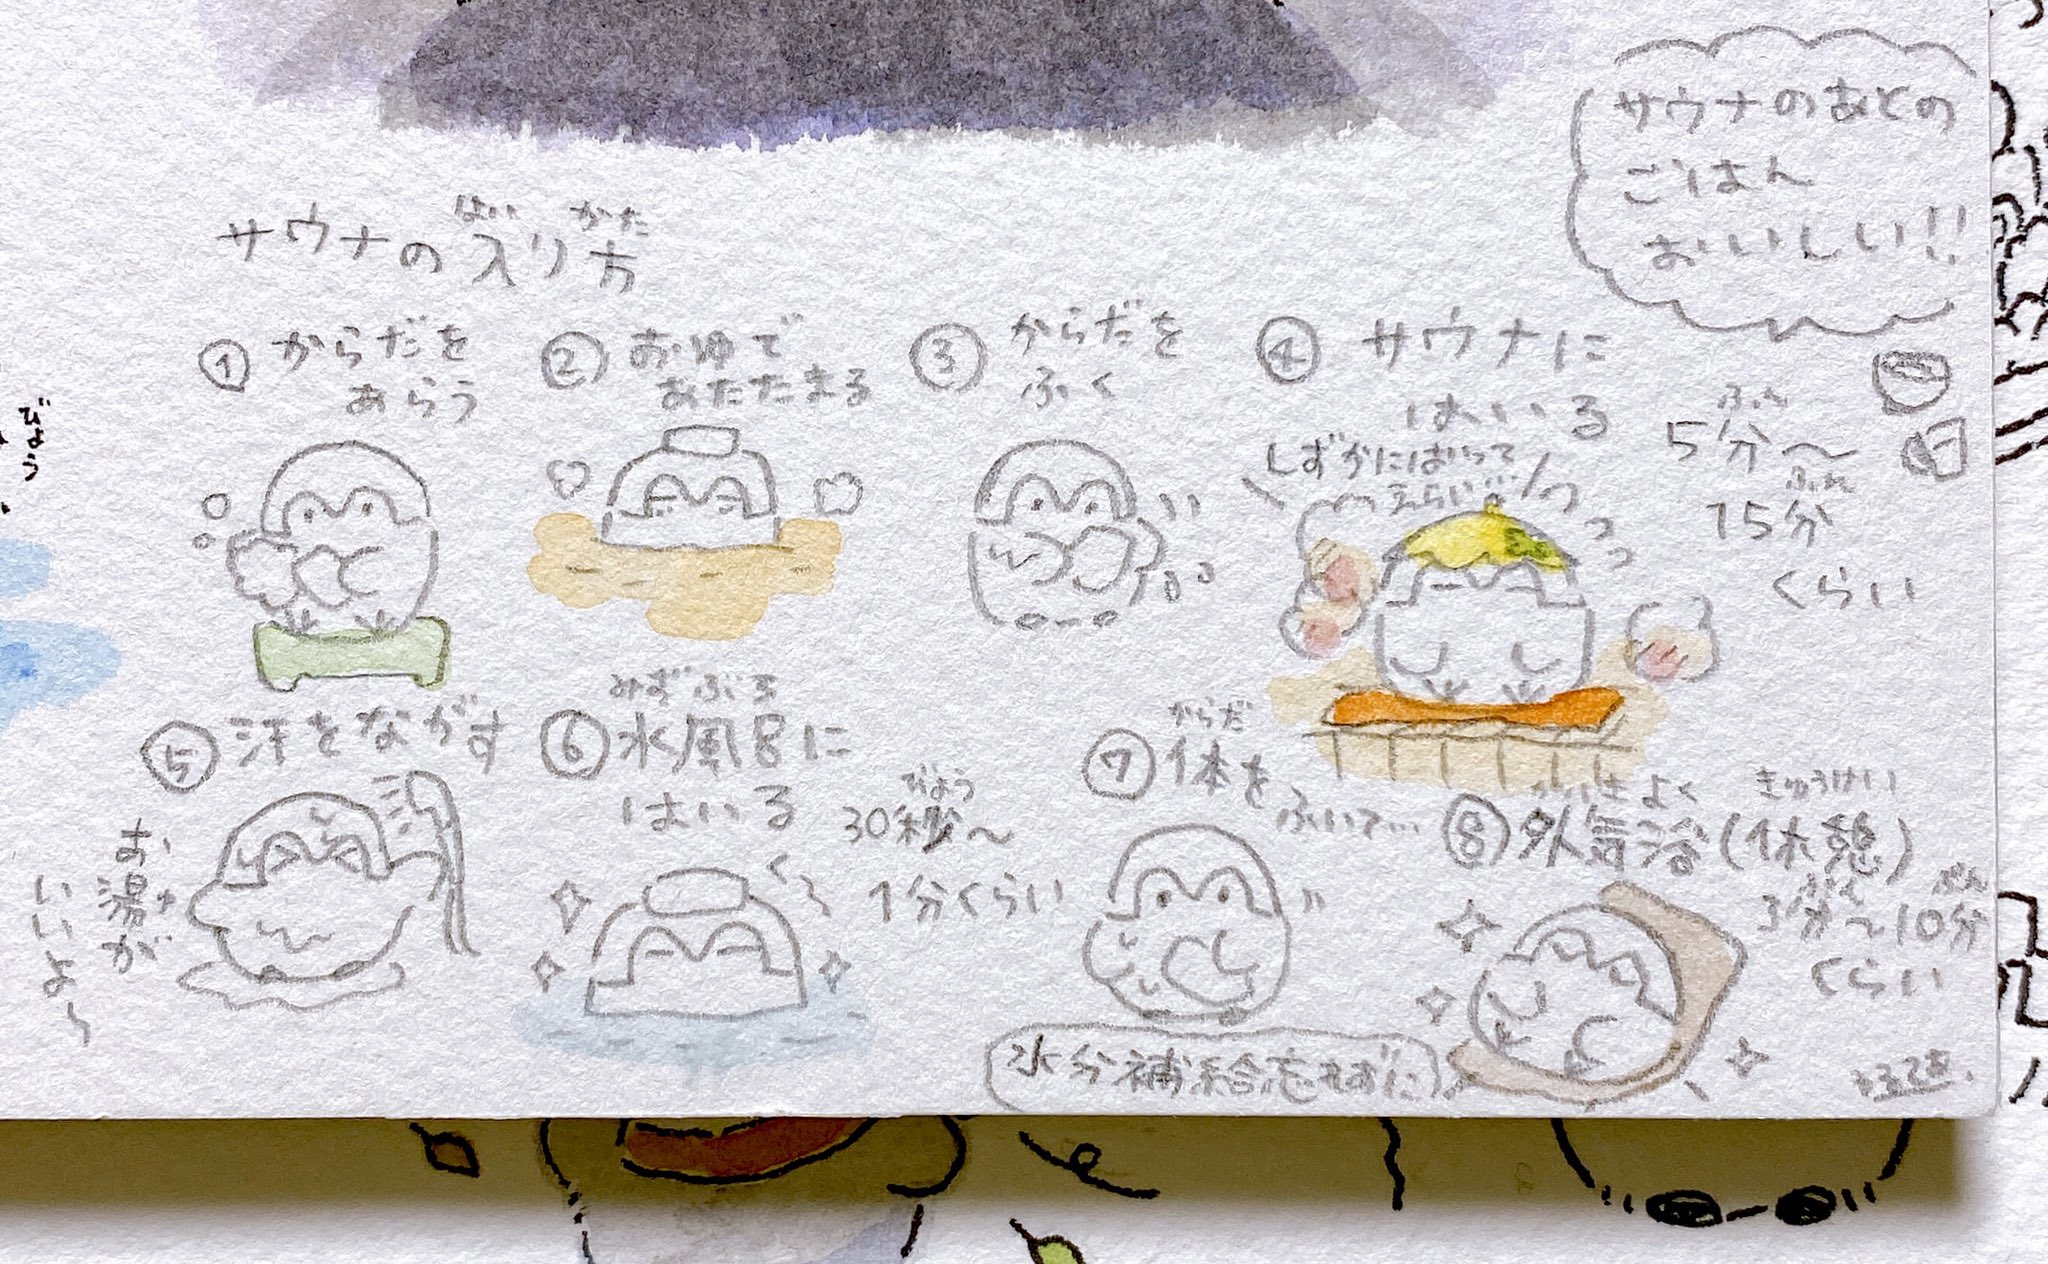 サウナの入り方
はい かた
サウナのあとの
ごはん
おいしい!!
① からだを
あらう
② おゆで
あたたまる
③ からだを
ふく
④ サウナに
はいる
しずかにはいって
えらい…
ふん
5分〜
ふん
15分
くらい
⑤ 汗をながす
お湯が
ゆ
いいよ〜
みずぶろ
⑥ 水風呂に
はいる
びょう
30秒〜
1分くらい
からだ
⑦ 体を
ふいて…
水分補給忘れずに
きゅうけい
⑧ 外気浴(休憩)
ぷん ぷん
3分〜10分
くらい
びょう